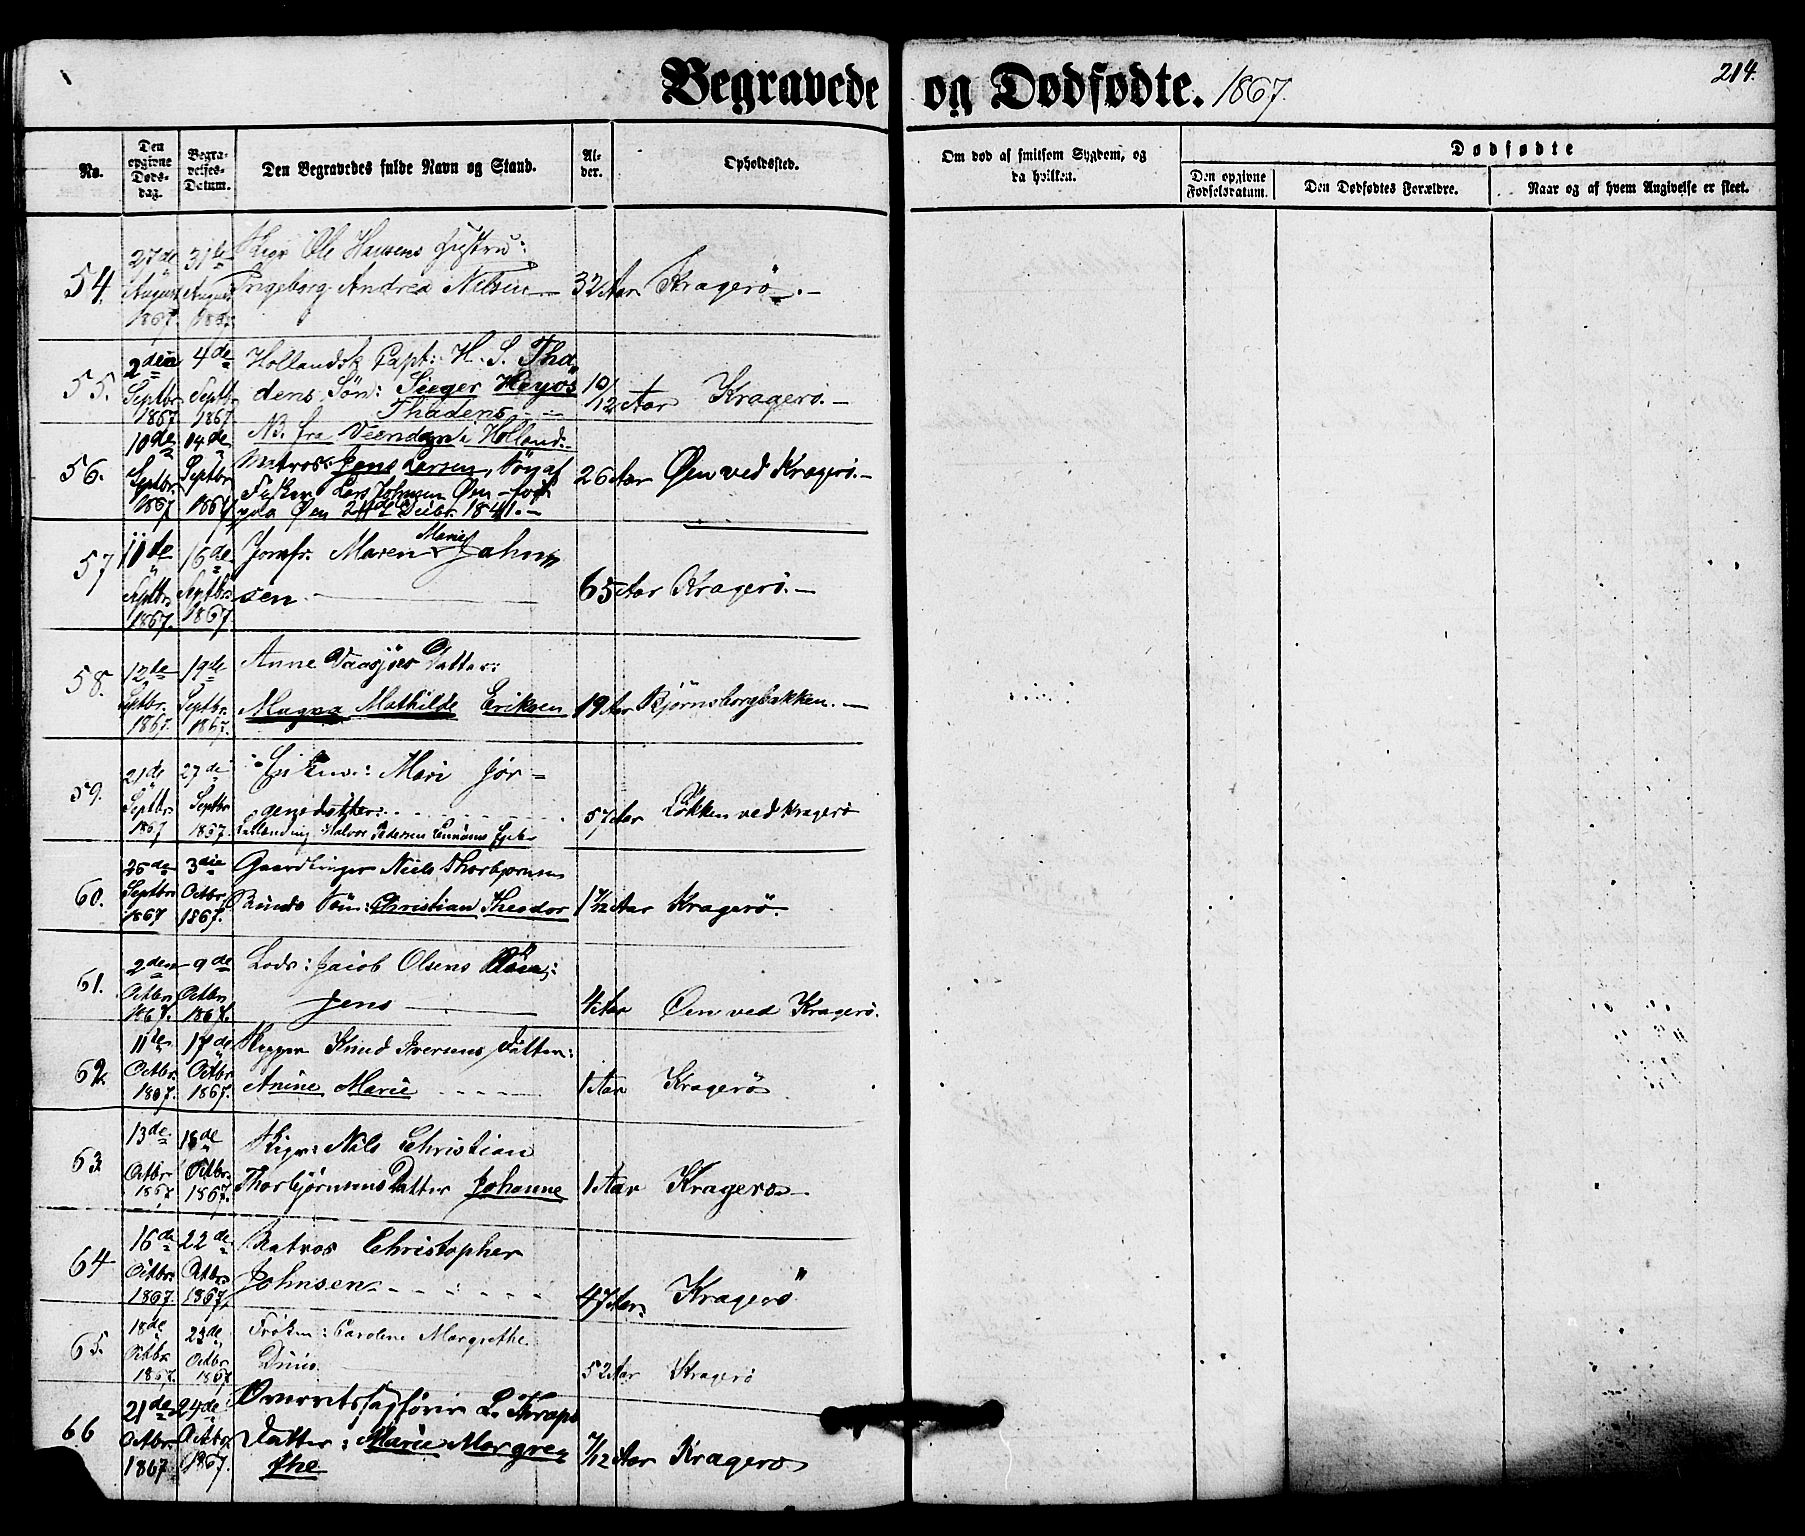 Begravede og Dødfødte. 1867.
214.
No.
Den opgivne Døds-dag.
Begra-velses-Datum.
Den Begravedes fulde Navn og Stand.
Al-der.
Opholdssted.
Om død af smitsom Sygdom, og da hvilken.
Dødfødte
Den opgivne Fødselsdatum.
Den Dødfødtes Forældre.
Naar og af hvem Angivelse er skeet.
54. 27de August 1867. 31te August 1867. Ole Hansens Hustru:
Ingeborg Andrea Nilsen 32 Aar Kragerö.
55. 2den Septbr. 1867 4de Septbr. 1867 Hollandsk Capt: H. S. Tha-
dens Sön: Sieger Heyos 10/12 Aar Kragerö.
Thadens
NB. fra Veendam i Holland.
56. 10de Septbr. 1867 14de Septbr. 1867 Matros: Jens Larsen, Sön af 26 Aar Øen ved Kragerö.
Fisker Lars Johnsen Øen - født
paa Øen 24de Decbr. 1841.
57 11te Septbr. 1867. 16de Septbr. 1867. Jomfr. Maren Marie John-
sen 65 Aar Kragerö.
58. 12te Septbr. 1867. 19de Septbr. 1867. Anne Datter:
Magna Mathilde Eriksen 19 Aar Bjørnsborgbakken.
59. 21de Septbr. 1867 27de Septbr. 1867. Mari Jör-
gensdatter: 57 Aar Løkken ved Kragerö
Halvor Pedersen
60. 25de Septbr. 1867 3die Octbr. 1867. Niels Thorbjørnsen
Sön: Christian Theodor 1 Aar Kragerö.
61. 2den Octbr. 1867. 9de Octbr. 1867. Lods: Jacob Olsens Sön:
Jens 4 Aar Øen ved Kragerö.
62. 11te Octbr. 1867. 17de Octbr. 1867. Skipper Knud Iversens Datter:
Anine Marie 1 Aar Kragerö
63. 13de Octbr. 1867 18de Octbr. 1867. Nils Christian
Thorbjørnsens Datter Johanne 1 Aar Kragerö
64 16de Octbr. 1867. 22de Octbr. 1867. Matros Christopher
Johnsen. 47 Aar. Kragerö
65. 18de Octbr. 1867. 23de Octbr. 1867 Frøken: Caroline Margrethe
52 Aar Kragerö
66 21de Octbr. 1867 24de Octbr. 1867. Overretssagförer L. Kraps
Datter: Marie Margre-
the 7/12 Aar Kragerö